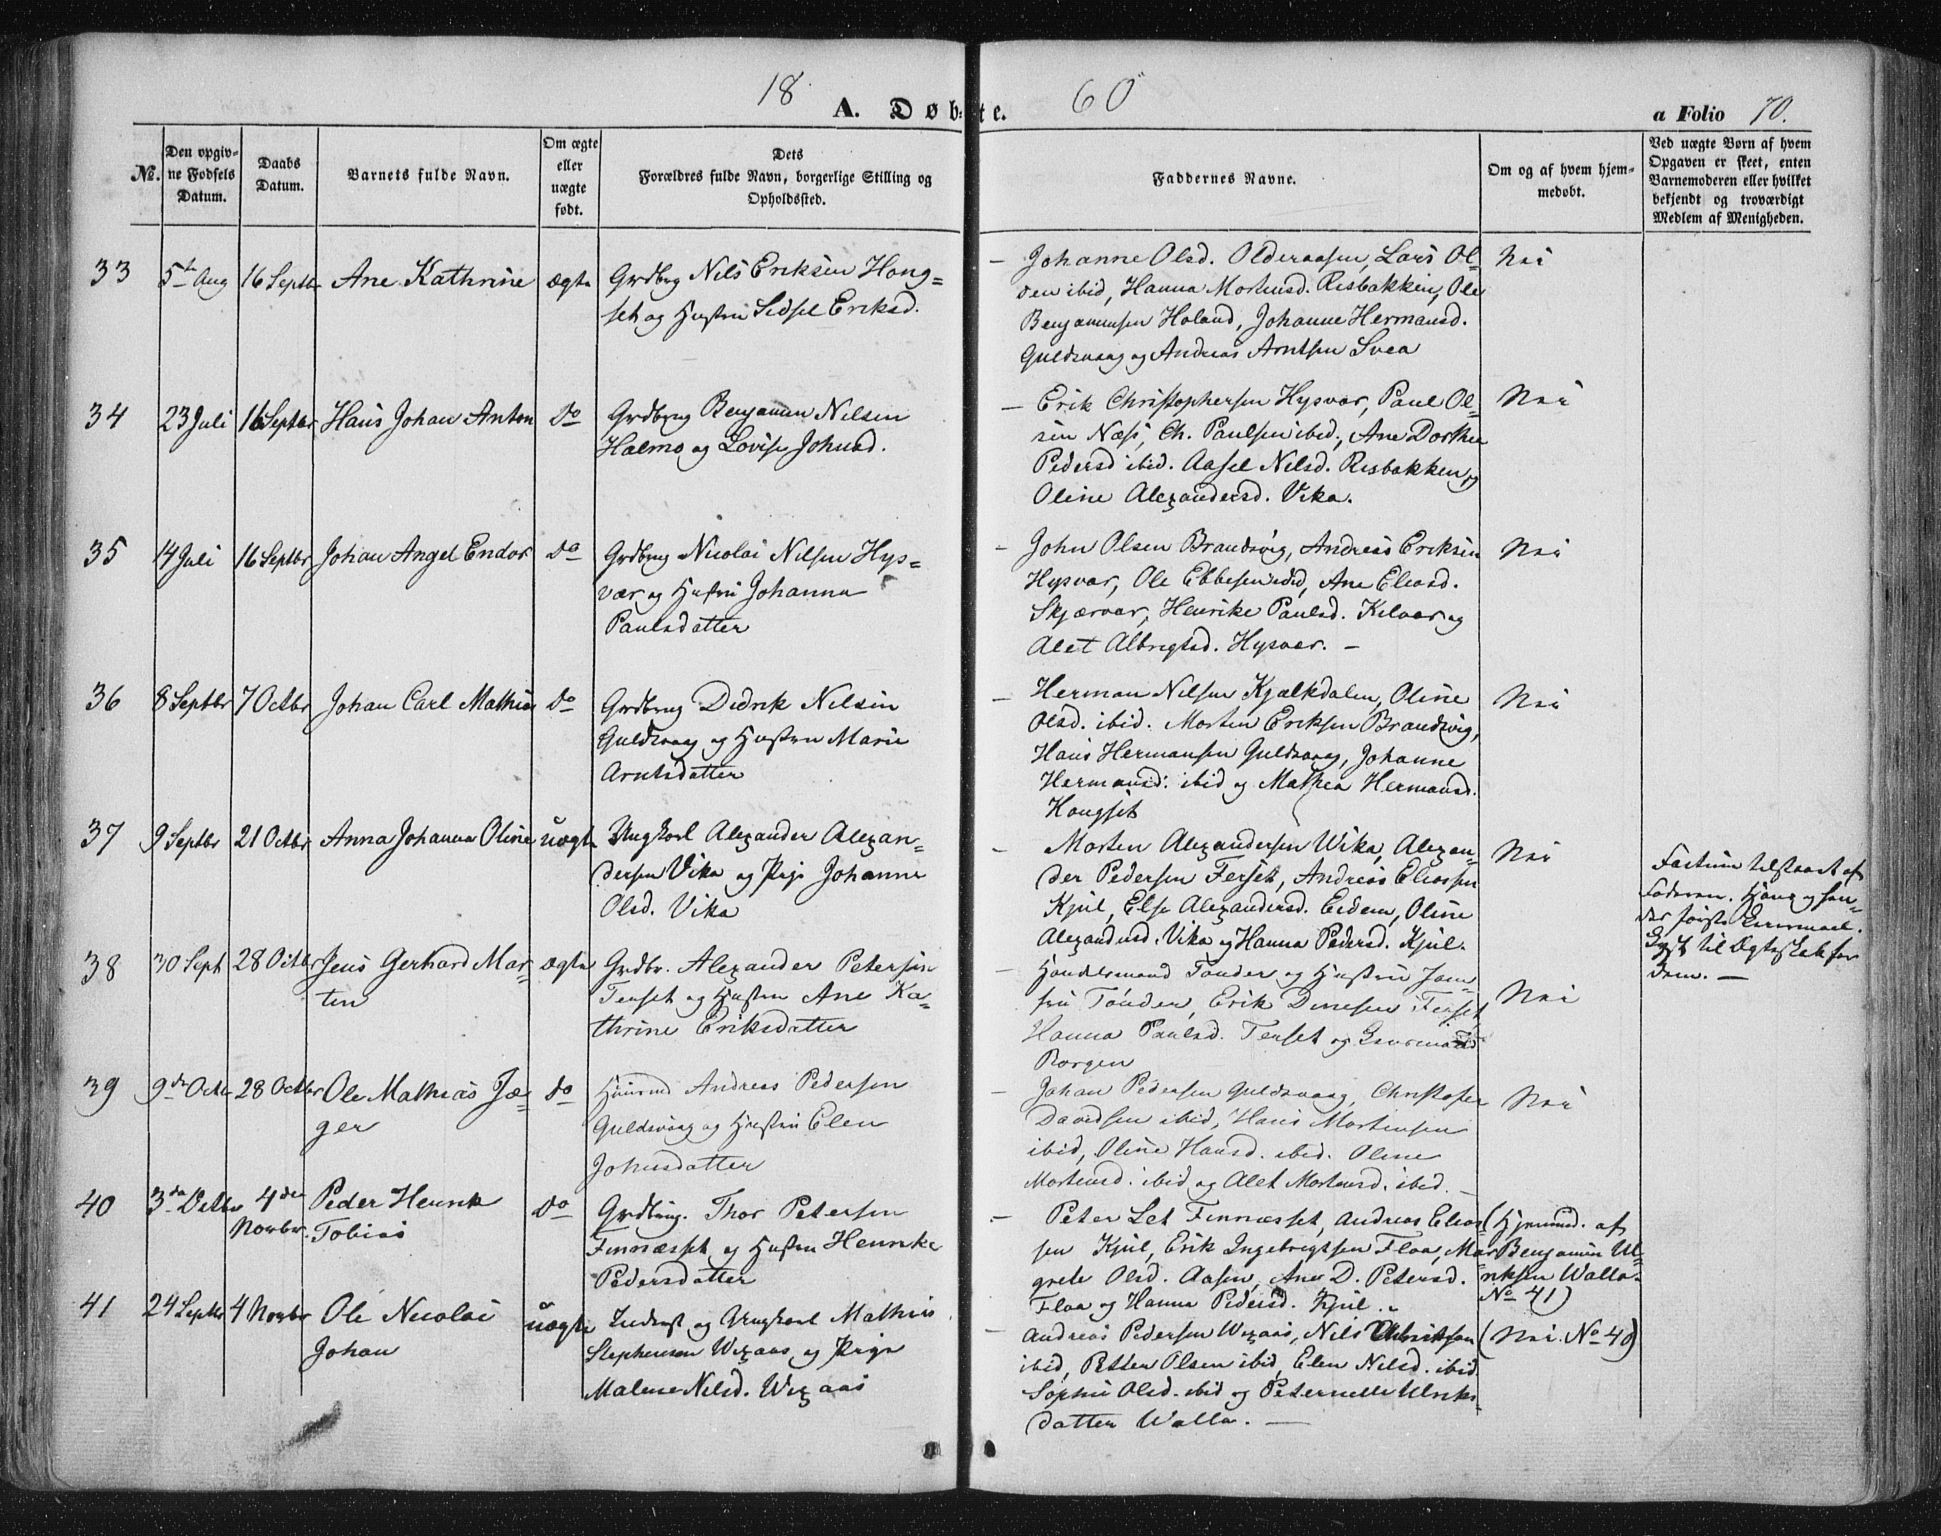 18 A. Døbte. 60 a Folio 70.
No.
Den opgiv-
ne Fødsels
Datum.
Daabs
Datum.
Barnets fulde Navn.
Om ægte
eller
uægte
født.
Dets
Forældres fulde Navn, borgerlige Stilling og
Opholdssted.
Faddernes Navne.
Om og af hvem hjem-
medøbt.
Ved uægte Børn af hvem
Opgaven er skeet, enten
Barnemoderen eller hvilket
bekjendt og troværdigt
Medlem af Menigheden.
33 5te Aug 16 Septbr Ane Kathrine ægte
Grdbrg Nils Eriksen Hong-
set og Hustru Sidsel Eriksd.
– Johanne Olsd. Olderaasen, Lars Ol-
den ibid, Hanna Mortensd. Risbakken, Ole
Benjaminsen Holand, Johanne Hermansd.
Guldsvaag og Andreas Arntsen Svea
Nei
34 23 Juli 16 Septbr Hans Johan Anton Do
Grdbrug Benjamin Nilsen
Halmo og Lovise Johnsd.
– Erik Christophersen Hysvær, Paul Ol-
sen Næss, Ch. Paulsen ibid, Ane Dorthea
Pedersd ibid. Aasel Nilsd. Risbakken og
Oline Alexandersd. Vika.
Nei
35 14 Juli 16 Septbr Johan Angel Endor Do
Grdbrug Nicolai Nilsen Hys-
vær og Hustru Johanna
Paulsdatter
– John Olsen Brandsvig, Andreas Eriksen
Hysvær, Ole Ebbesen ibid, Ane Eliasd.
Skjærvær, Henrike Paulsd. Kilvær og
Alet Albregtsd. Hysvær. –
Nei
36 8 Septbr 7 Octbr Johan Carl Mathias Do
Grdbrug Didrik Nilsen
Guldsvaag og Hustru Marie
Arntsdatter
– Herman Nilsen Kjælkdalen, Oline
Olsd. ibid. Morten Eriksen Brandsvig,
Hans Hermansen Guldsvaag, Johanne
Hermansd. ibid og Mathea Hermansd.
Hongset
Nei
37 9 Septbr 21 Octbr Anna Johanna Oline uægte
Ungkarl Alexander Alexan-
dersen Vika og Pige Johanne
Olsd. Vika
– Morten Alexandersen Wika, Alexan-
der Pedersen Ferset, Andreas Eliassen
Kjul, Else Alexandersd. Eidem, Oline
Alexandersd. Vika og Hanna Pedersd. Kjul.
Nei
Factum tilstaaet af
Faderen. Hans og hen-
des første Leiermaal.
Lyst til Ægteskab for
dem. –
38 30 Sept 28 Octbr Jens Gerhard Mar-
tin
ægte
Grdbr. Alexander Petersen
Terset og Hustru Ane Ka-
thrine Eriksdatter
– Handelsmand Tønder og Hustru, Jom-
fru Tønder, Erik Dinesen Terset
Hanna Paulsd. Terset og
Borgen
Nei
39 9de Octbr 28 Octbr Ole Mathias Jæ-
ger
do
Huusmd Andreas Pedersen
Guldsvaag og Hustru Elen
Johnsdatter
– Johan Pedersen Guldsvaag, Christofer
Davidsen ibid, Hans Mortensen
ibid, Oline Hansd. ibid. Oline
Mortensd. ibid og Alet Mortensd. ibid. –
Nei
40 3die Octbr 4den
Novbr.
Peder Henrik
Tobias
Do
Grdbrug. Thor Petersen
Finnæsset og Hustru Henrike
Pedersdatter
– Peter Let Finnæsset, Andreas Elias-
sen Kjul, Erik Ingebrigtsen Flaa, Mar-
grete Olsd. Aasen, Ane D. Petersd.
Flaa og Hanna Pedersd. Kjul.
(Hjemmed. af
Benjamin Ul-
riksen Walla.
No 41)
41 24 Septbr 4 Novbr Ole Nicolai
Johan
uægte
Inderst og Ungkarl Mathias
Stephensen Wegaas og Pige
Malene Nilsd. Wegaas
– Andreas Pedersen Wegaas, Nils Ulriksen
ibid, Petter Olsen ibid, Elen Nilsd. ibid
Sophie Olsd. ibid og Peternelle Ulriks-
datter Walla. –
(Nei. No 40)